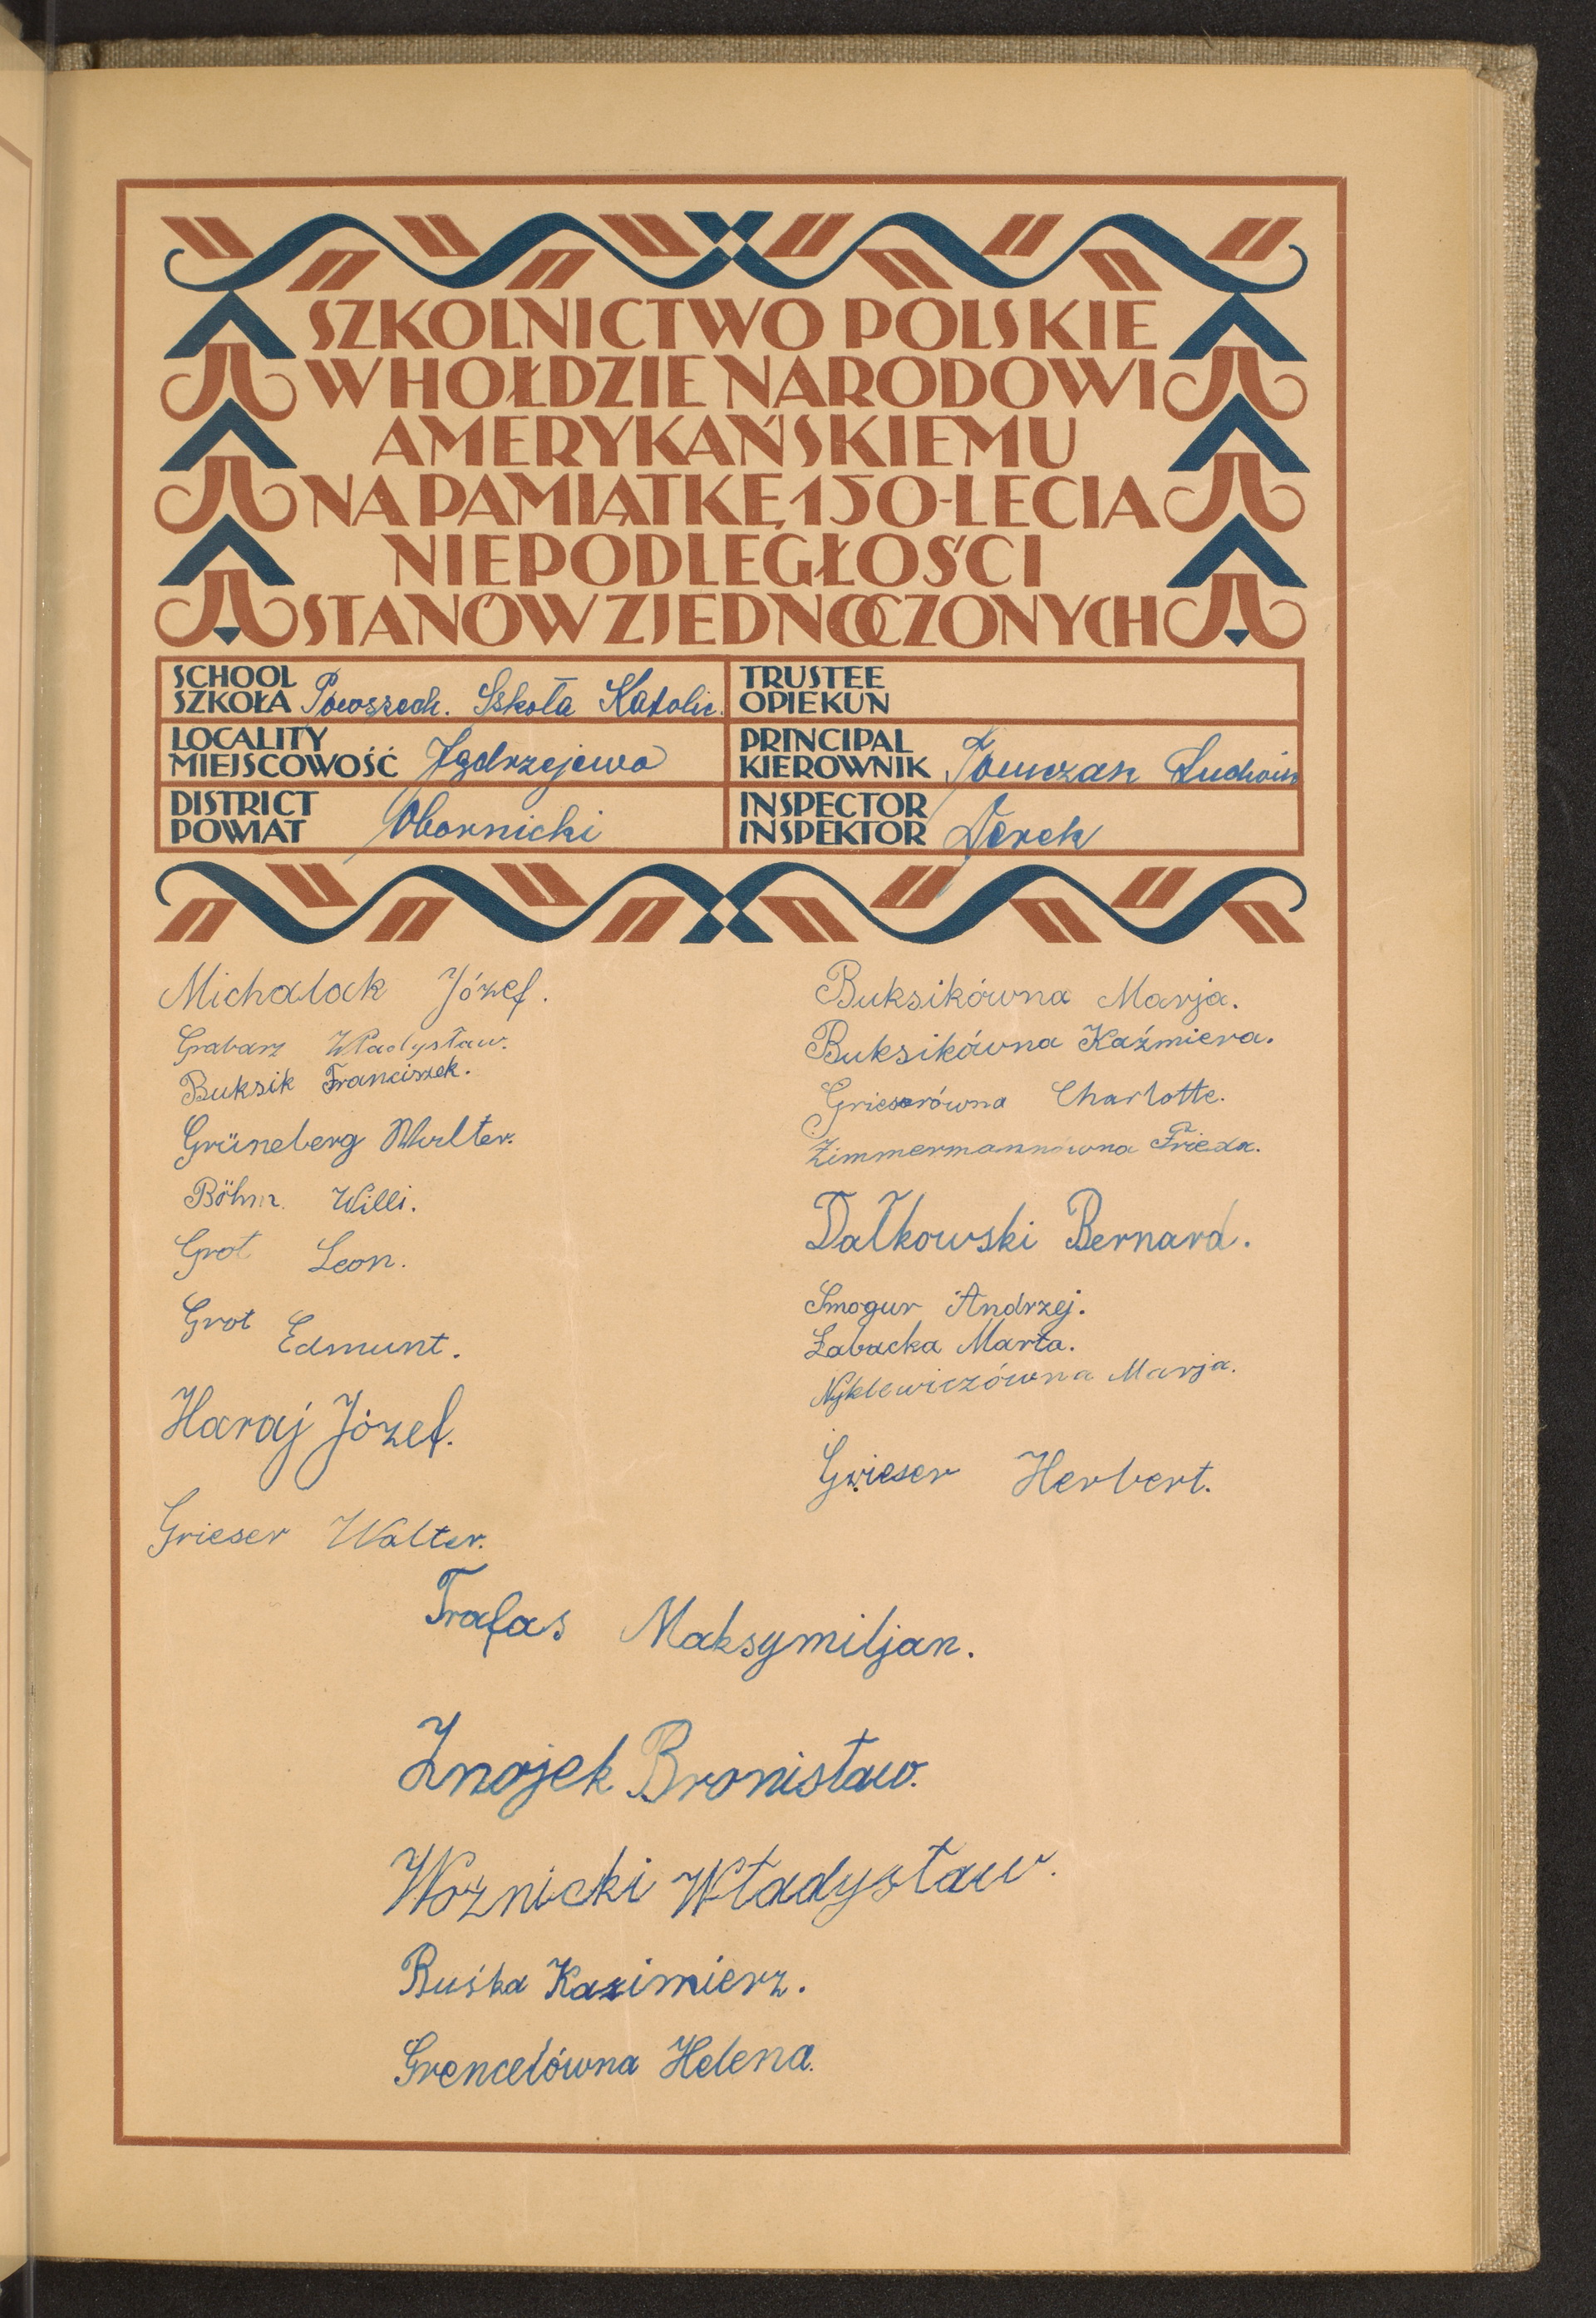 SZKOLNICTWO POLSKIE
W HOŁDZIE NARODOWI
AMERYKAŃSKIEMU
NA PAMIĄTKĘ 150-LECIA
NIEPODLEGŁOŚCI
STANÓW ZJEDNOCZONYCH
SCHOOL
SZKOŁA Powszech. Szkoła Katolic.
TRUSTEE
OPIEKUN
LOCALITY
MIEJSCOWOŚĆ Jędrzejewo
PRINCIPAL
KIEROWNIK Tomczak Ludwik
DISTRICT
POWIAT Obornicki
INSPECTOR
INSPEKTOR
Michalak Józef.
Grabarz Władysław.
Buksik Franciszek.
Grüneberg Walter.
Böhm Willi.
Grot Leon.
Grot Edmunt.
Haraj Józef.
Grieser Walter.
Buksikówna Marja.
Buksikówna Kaźmiera.
Grieserówna Charlotte.
Zimmermannówna Frieda.
Dałkowski Bernard.
Smogur Andrzej.
Łabacka Marta.
Nyklewiczówna Marja.
Grieser Herbert.
Trafas Maksymiljan.
Znojek Bronisław.
Woźnicki Władysław.
Ruśka Kazimierz.
Grencelówna Helena.